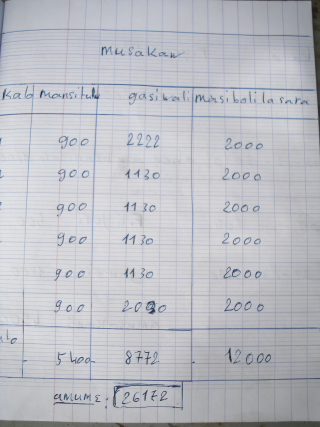 musakaw
kab mansitulu gasibali masibali la sara
900 2222 2000
900 1130 2000
900 1130 2000
900 1130 2000
900 1130 2000
900 2000
5400 8772 12000
amume: 26172